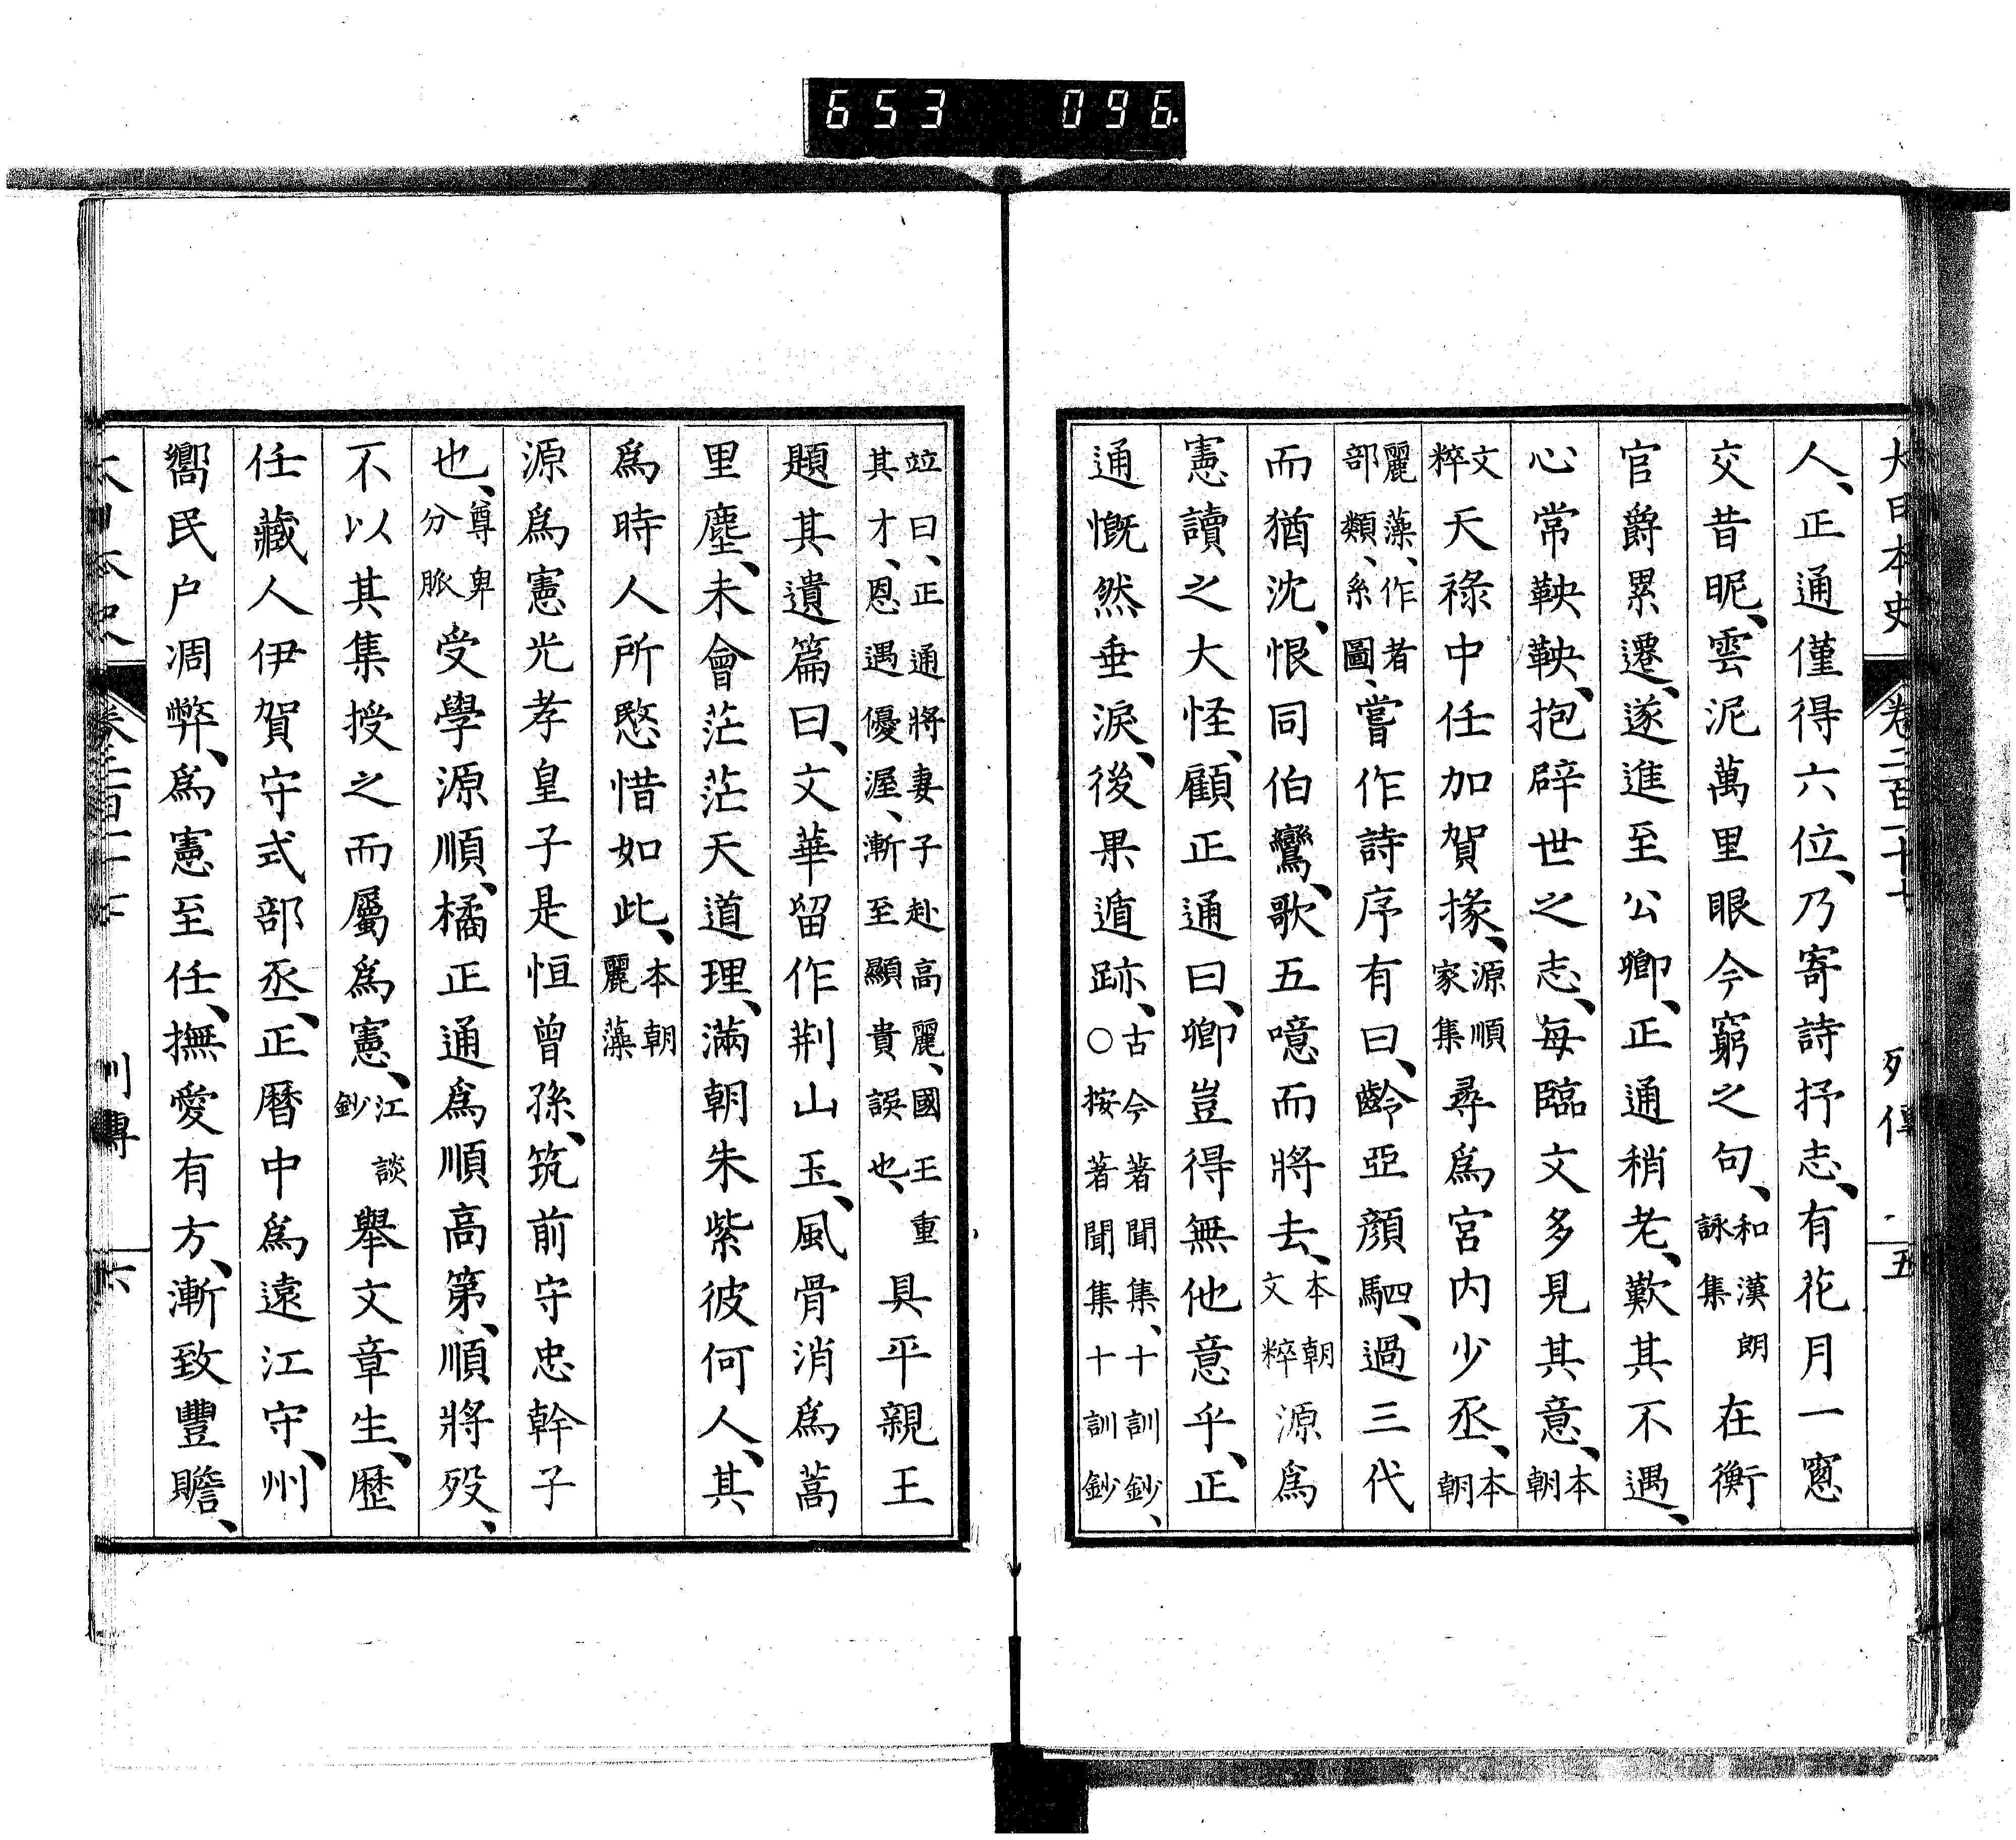 653 096.
大日本史 卷二百一十七 列傳 五
人、正通僅得六位、乃寄詩抒志、有花月一窓
交昔昵、雲泥萬里眼今窮之句、和漢朗詠集在衡
官爵累遷、遂進至公卿、正通稍老、歎其不遇、
心常鞅鞅、抱辟世之志、每臨文多見其意、本朝
文粹天祿中任加賀掾、源順家集尋爲宮内少丞、本朝
麗藻、作者部類、系圖、嘗作詩序有曰、齡亞顏駟、過三代
而猶沈、恨同伯鸞、歌五噫而將去、本朝文粹源爲
憲讀之大怪、顧正通曰、卿豈得無他意乎、正
通慨然垂淚、後果遁跡、古今著聞集、十訓鈔、○按著聞集十訓鈔、
竝曰、正通將妻子赴高麗、國王重其才、恩遇優渥、漸至顯貴誤也、具平親王
題其遺篇曰、文華留作荆山玉、風骨消爲蒿
里塵、未會茫茫天道理、滿朝朱紫彼何人、其
爲時人所愍惜如此、本朝麗藻
源爲憲光孝皇子是恒曾孫、筑前守忠幹子
也、尊卑分脈受學源順、橘正通爲順高第、順將歿、
不以其集授之而屬爲憲、江談鈔舉文章生、歷
任藏人伊賀守式部丞、正曆中爲遠江守、州
嚮民户凋弊、爲憲至任、撫愛有方、漸致豐贍、
大日本史 卷二百一十七 列傳 六